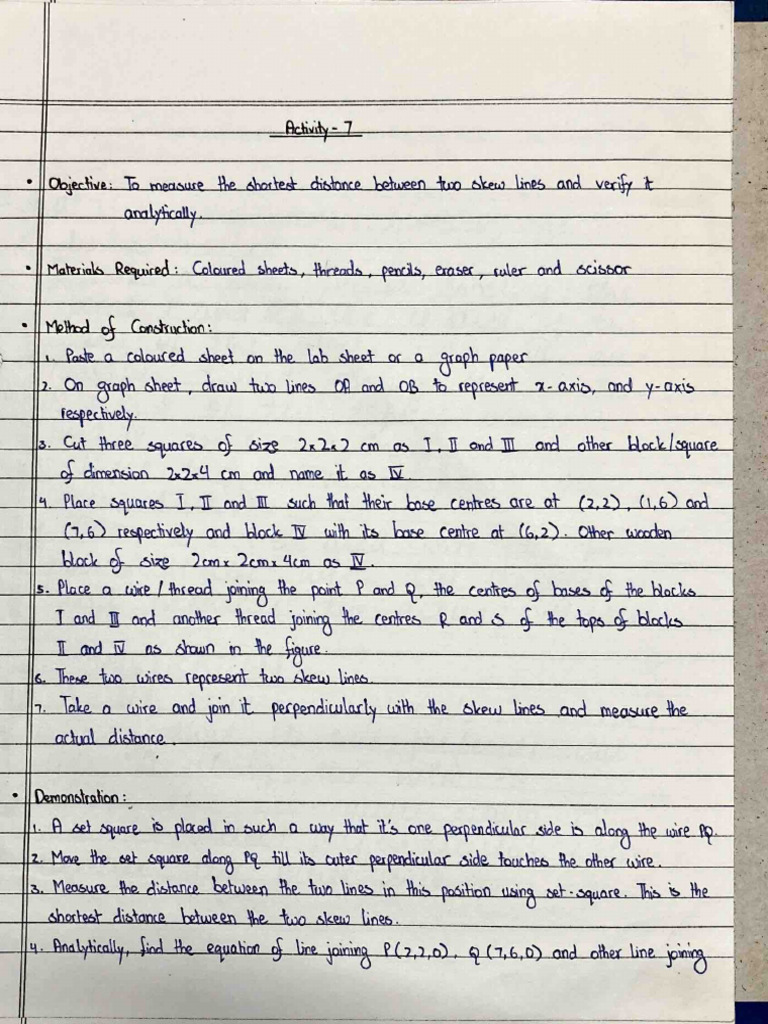 Activity - 7
• Objective: To measure the shortest distance between two skew lines and verify it
analytically.
• Materials Required: Coloured sheets, threads, pencils, eraser, ruler and scissor
• Method of Construction:
1. Paste a coloured sheet on the lab sheet or a graph paper
2. On graph sheet, draw two lines OA and OB to represent x-axis, and y-axis
respectively.
3. Cut three squares of size 2x2x2 cm as I, II and III and other block/square
of dimension 2x2x4 cm and name it as IV.
4. Place squares I, II and III such that their base centres are at (2,2), (1,6) and
(7,6) respectively and block IV with its base centre at (6,2). Other wooden
block of size 2cm x 2cm x 4cm as IV.
5. Place a wire / thread joining the point P and Q, the centres of bases of the blocks
I and III and another thread joining the centres R and S of the tops of blocks
II and IV as shown in the figure.
6. These two wires represent two skew lines.
7. Take a wire and join it perpendicularly with the skew lines and measure the
actual distance.
• Demonstration:
1. A set square is placed in such a way that it's one perpendicular side is along the wire PQ.
2. Move the set square along PQ till its outer perpendicular side touches the other wire.
3. Measure the distance between the two lines in this position using set-square. This is the
shortest distance between the two skew lines.
4. Analytically, find the equation of line joining P(2,2,0), Q(7,6,0) and other line joining